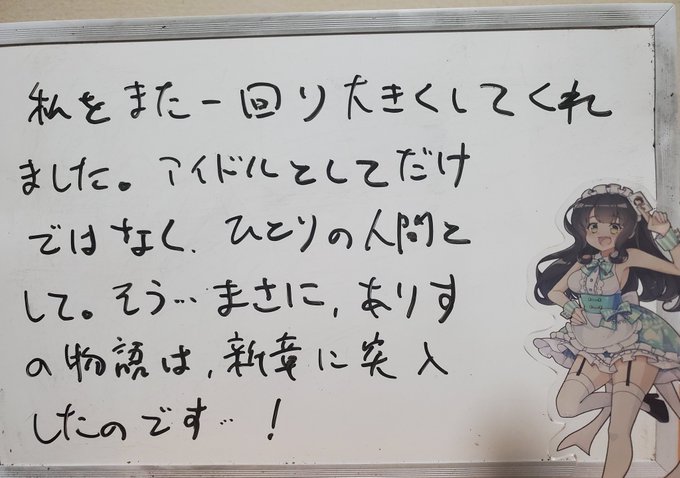 私をまた一回り大きくしてくれ
ました。アイドルとしてだけ
ではなく、ひとりの人間と
して。そう…まさに、ありす
の物語は、新章に突入
したのです…！